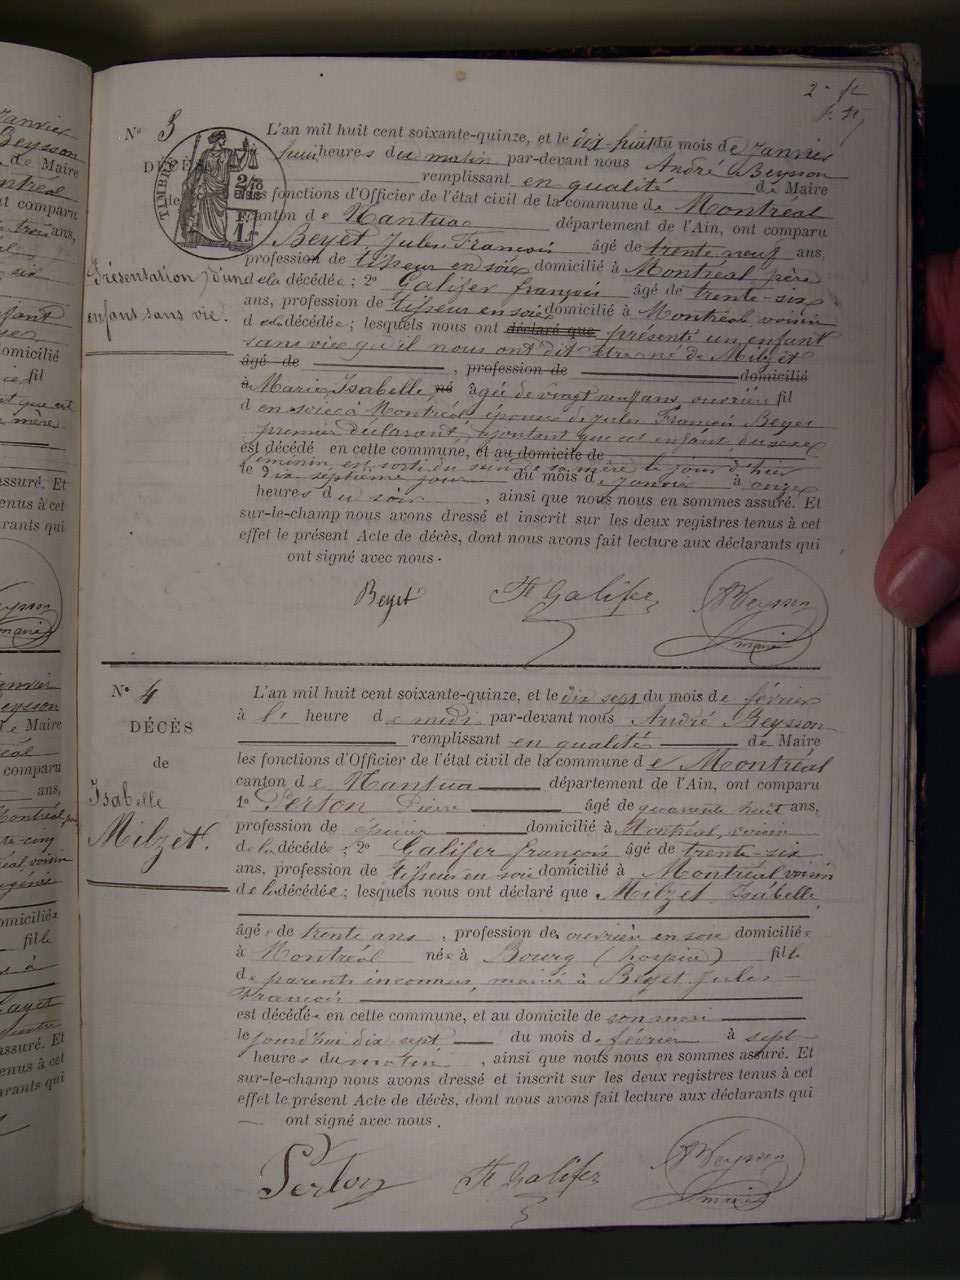 2e f
Nº 3
DÉCÈS
de
TIMBRE
Présentation d'un
enfant sans vie.
L'an mil huit cent soixante-quinze, et le dix-huit du mois de Janvier
huit heures du matin par-devant nous André Beysson
remplissant en qualité de Maire
les fonctions d'Officier de l'état civil de la commune de Montréal
canton de Nantua département de l'Ain, ont comparu
Beyet Jules François âgé de trente neuf ans,
profession de tisseur en soie domicilié à Montréal père
de la décédée ; 2º Galifer françois âgé de trente-six
ans, profession de tisseur en soie domicilié à Montréal, voisin
de la décédée ; lesquels nous ont déclaré que présenté un enfant
sans vie qu'il nous ont dit être né de Milzet
âgé de , profession de domicilié
à Marie Isabelle né âgée de vingt neuf ans ouvrière fil
d en soie à Montréal épouse de Jules François Beyet
premier déclarant, ajoutant que cet enfant du sexe
est décédé en cette commune, et au domicile de
féminin, est sorti du sein de sa mère le jour d'hier
le dix septième jour du mois de Janvier à onze
heures du soir , ainsi que nous nous en sommes assuré. Et
sur-le-champ nous avons dressé et inscrit sur les deux registres tenus à cet
effet le présent Acte de décès, dont nous avons fait lecture aux déclarants qui
ont signé avec nous.
Beyet fs Galifer ABeysson
maire
Nº 4
DÉCÈS
de
Isabelle
Milzet.
L'an mil huit cent soixante-quinze, et le dix sept du mois de février
à l' heure de midi par-devant nous André Beysson
remplissant en qualité de Maire
les fonctions d'Officier de l'état civil de la commune de Montréal
canton de Nantua département de l'Ain, ont comparu
1º Perton Pierre âgé de quarante huit ans,
profession de épicier domicilié à Montréal, voisin
de la décédée ; 2º Galifer françois âgé de trente-six
ans, profession de tisseur en soie domicilié à Montréal, voisin
de la décédée ; lesquels nous ont déclaré que Milzet Isabelle
âgée de trente ans , profession de ouvrière en soie domiciliée
à Montréal née à Bourg (hospice) fille
de parents inconnus, mariée à Beyet Jules
François
est décédée en cette commune, et au domicile de son mari
le jourd'hui dix sept du mois de février à sept
heures du matin , ainsi que nous nous en sommes assuré. Et
sur-le-champ nous avons dressé et inscrit sur les deux registres tenus à cet
effet le présent Acte de décès, dont nous avons fait lecture aux déclarants qui
ont signé avec nous.
Perton fs Galifer ABeysson
maire